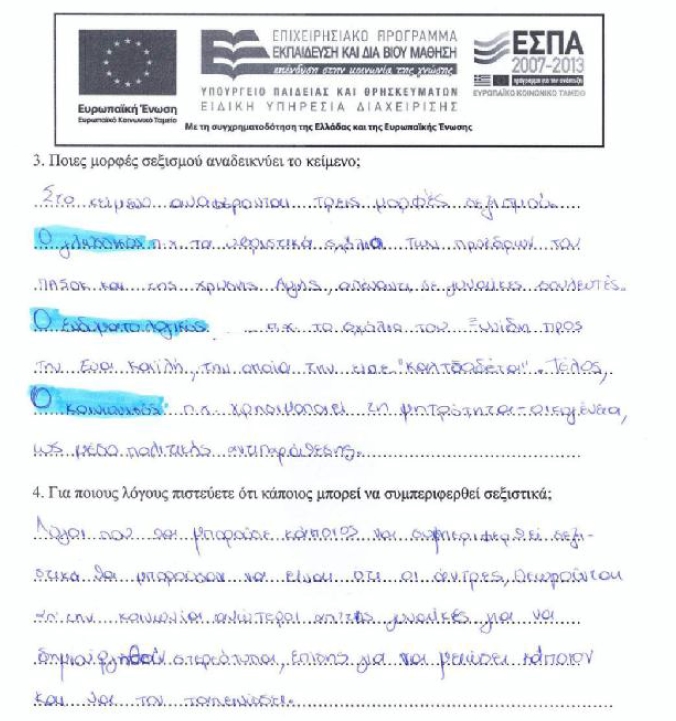 ΕΠΙΧΕΙΡΗΣΙΑΚΟ ΠΡΟΓΡΑΜΜΑ
ΕΚΠΑΙΔΕΥΣΗ ΚΑΙ ΔΙΑ ΒΙΟΥ ΜΑΘΗΣΗ
επένδυση στην κοινωνία της γνώσης
ΥΠΟΥΡΓΕΙΟ ΠΑΙΔΕΙΑΣ ΚΑΙ ΘΡΗΣΚΕΥΜΑΤΩΝ
ΕΙΔΙΚΗ ΥΠΗΡΕΣΙΑ ΔΙΑΧΕΙΡΙΣΗΣ
Ευρωπαϊκή Ένωση
Ευρωπαϊκό Κοινωνικό Ταμείο
ΕΣΠΑ
2007-2013
πρόγραμμα για την ανάπτυξη
ΕΥΡΩΠΑΪΚΟ ΚΟΙΝΩΝΙΚΟ ΤΑΜΕΙΟ
Με τη συγχρηματοδότηση της Ελλάδας και της Ευρωπαϊκής Ένωσης
3. Ποιες μορφές σεξισμού αναδεικνύει το κείμενο;
Στο κείμενο αναφέρονται τρεις μορφές σεξισμού.
Ο γλωσσικός π.χ. τα υβριστικά σχόλια των προέδρων του
ΠΑΣΟΚ και της Χρυσής Αυγής, απέναντι σε γυναίκες βουλευτές.
Ο ενδυματολογικός π.χ. το σχόλιο του Ξυνίδη προς
την Εύα Καϊλή, την οποία την είπε "καλτσοδέτα". Τέλος,
Ο κοινωνικός π.χ. χρησιμοποιεί τη μητρότητα-οικογένεια,
ως μέσο πολιτικής αντιπαράθεσης.
4. Για ποιους λόγους πιστεύετε ότι κάποιος μπορεί να συμπεριφερθεί σεξιστικά;
Λόγοι που θα μπορούσε κάποιος να συμπεριφερθεί σεξι-
στικά θα μπορούσαν να είναι ότι οι άντρες, θεωρούνται
την κοινωνία ανώτεροι απ'τις γυναίκες για να
δημιουργηθούν στερεότυπα, επίσης για να μειώσει κάποιον
και να τον ταπεινώσει.